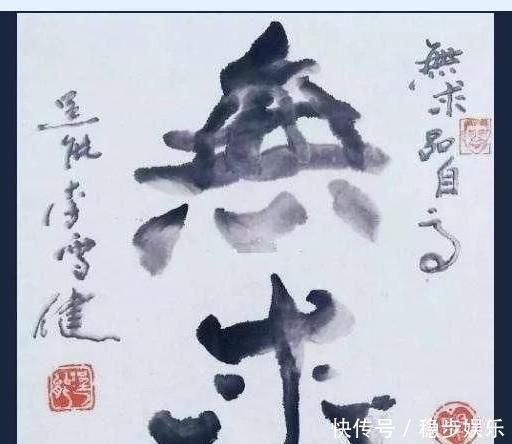 無求品自高
無求
李雪健
快传号 / 稳步娱乐